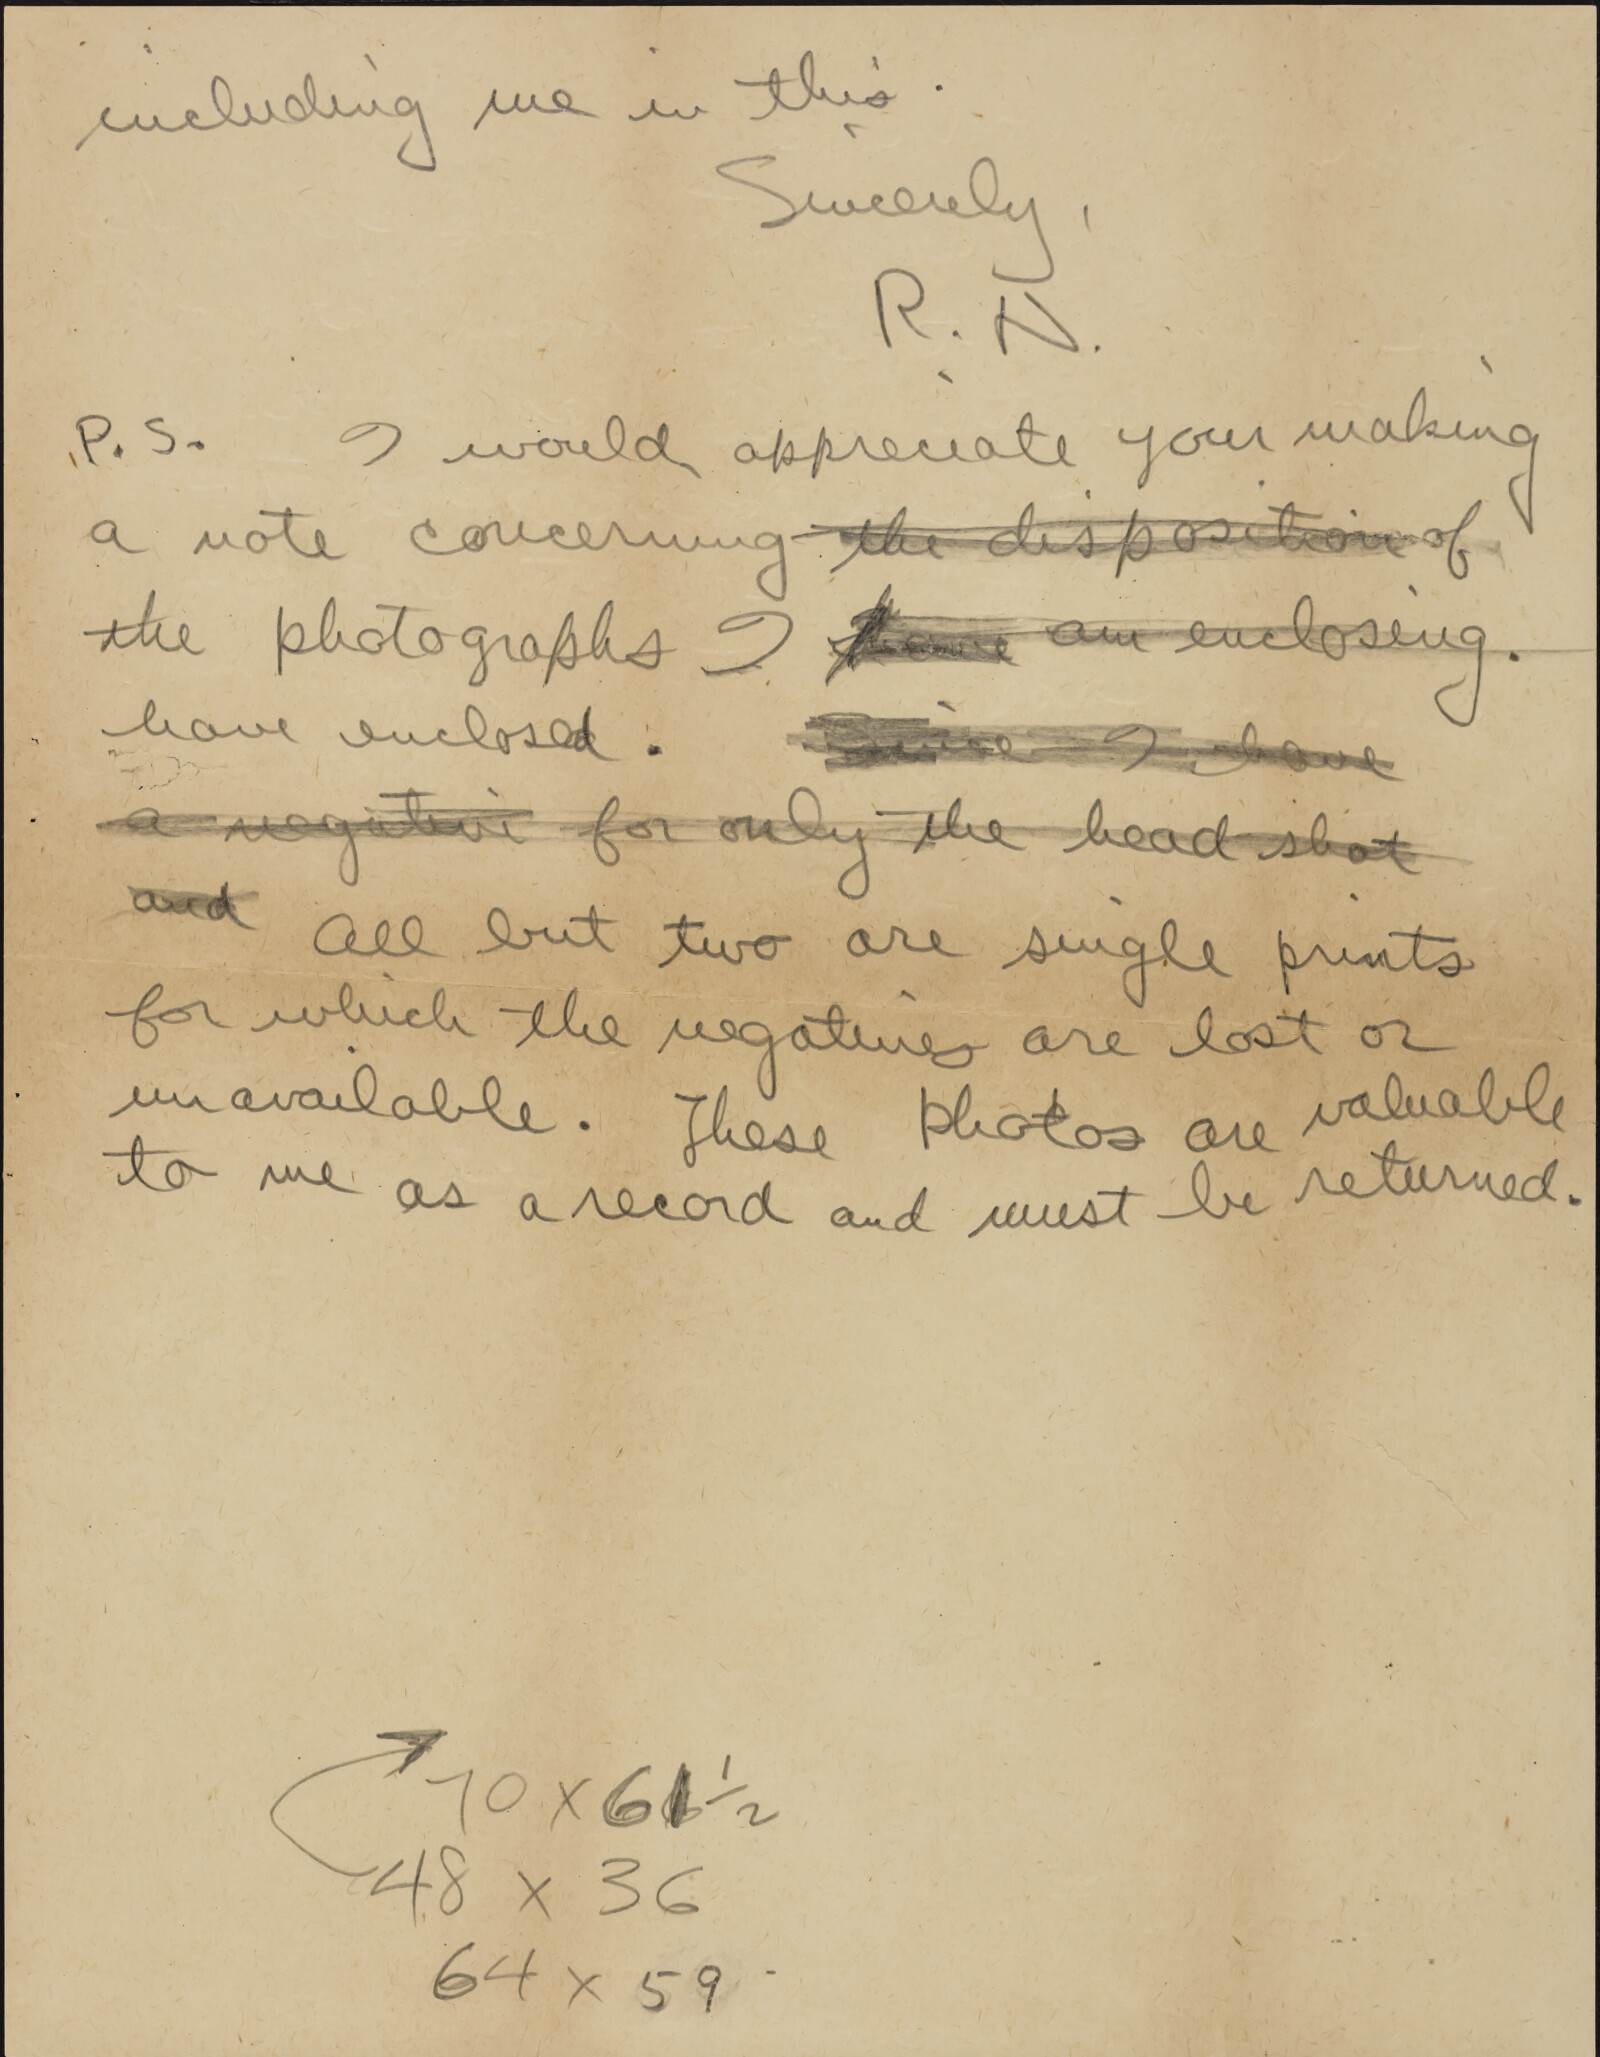 including me in this.
Sincerely,
R. N.
P.S. I would appreciate your making
a note concerning the disposition of
the photographs I have am enclosing.
have enclosed. Since I have
a negative for only the head shot
and All but two are single prints
for which the negatives are lost or
unavailable. These photos are valuable
to me as a record and must be returned.
70 x 61 1/2
48 x 36
64 x 59